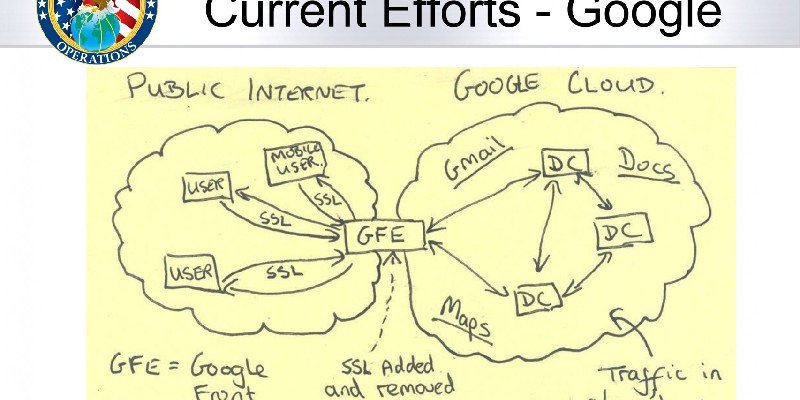 OPERATIONS
Current Efforts - Google
PUBLIC INTERNET.
GOOGLE CLOUD.
MOBILE
USER.
USER
SSL
SSL
USER
SSL
GFE
Gmail
DC
Docs
DC
DC
Maps
GFE = Google
Front
SSL Added
and removed
Traffic in